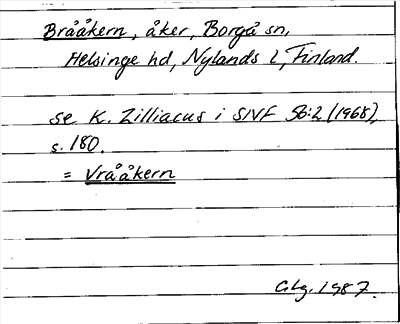 Brååkern, åker, Borgå sn,
Helsinge hd, Nylands l, Finland.
se K. Zilliacus i SNF 56:2 (1968),
s. 180.
= Vrååkern
Glg. 1987.